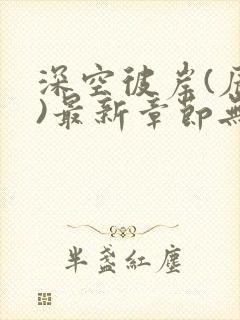 深空彼岸(辰
)最新章節無
半盞紅塵